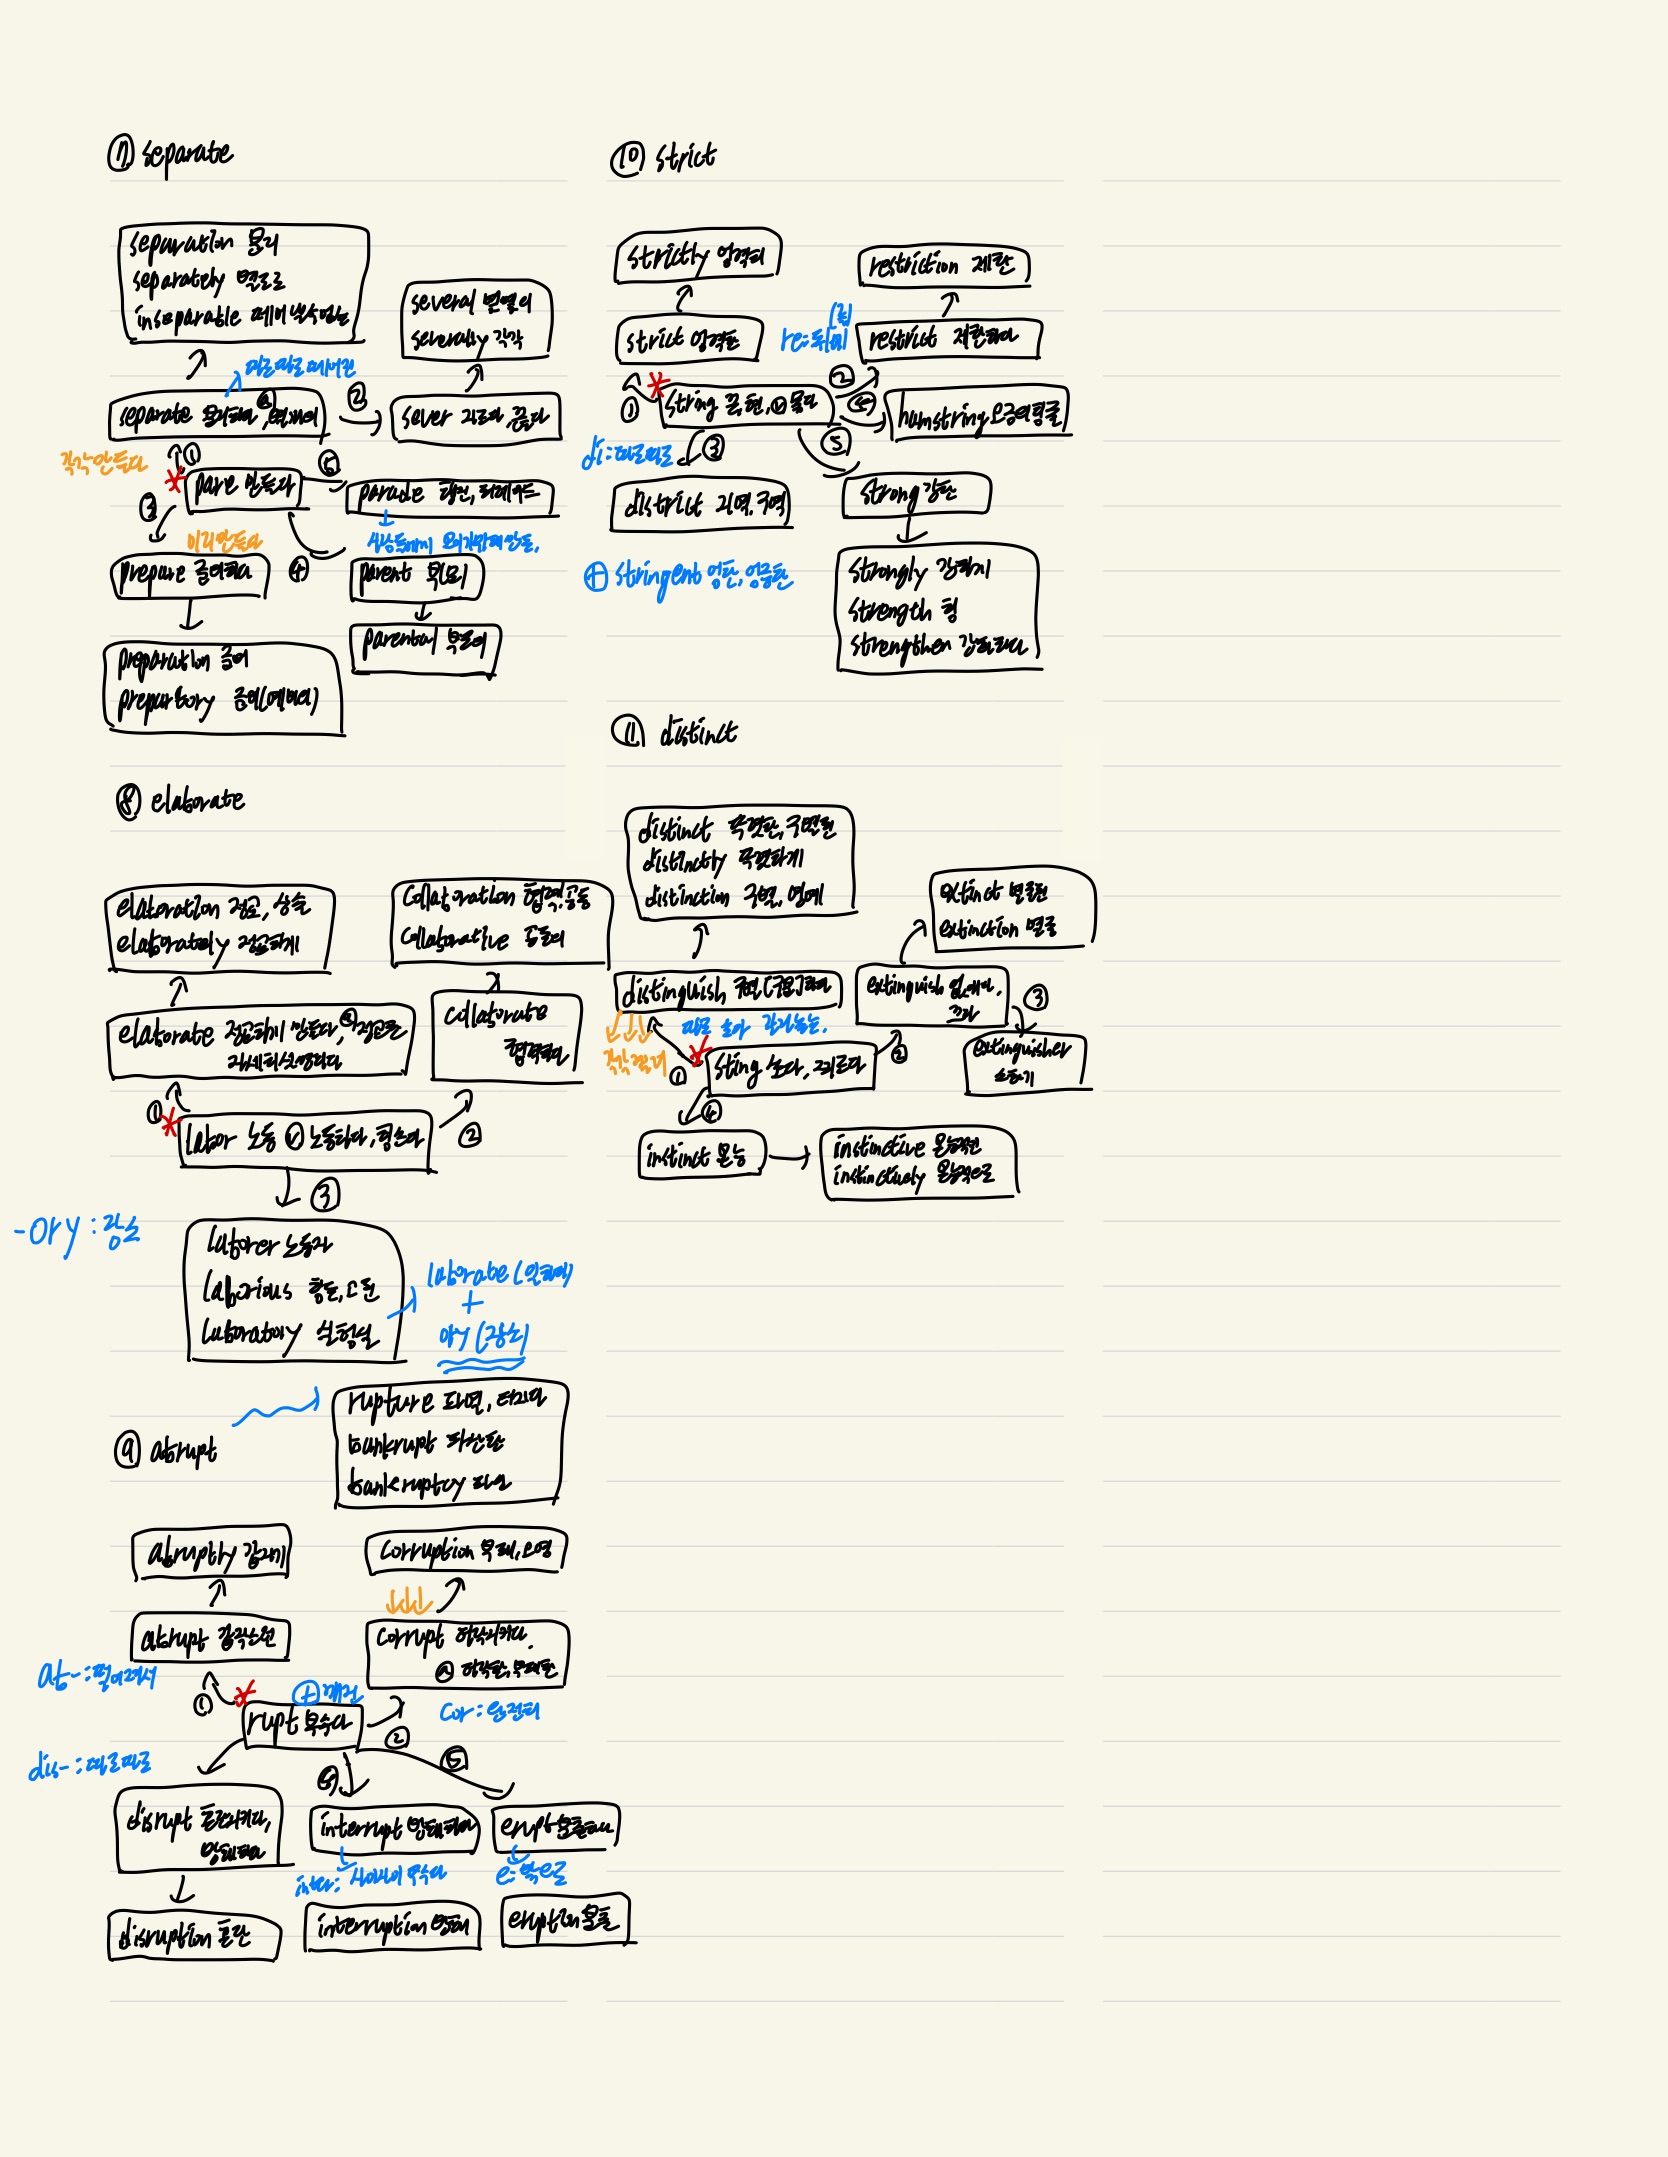 ⑦ separate
separation 분리
separately 별로로
inseparable 떼어낼수없는
several 몇몇의
severally 각각
따로따로 떼어진
separate 분리하다 ⓐ 별개의
②
sever 자르다, 끊다
각각만들다
①
⑤
pare 만들다
parade 행진, 퍼레이드
③
미리만들다
prepare 준비하다
④
parent 부(모)
parental 부모의
preparation 준비
prepartory 준비(예비)의
⑧ elaborate
elaboration 정교, 상술
elaborately 정교하게
Collaboration 협력, 공동
Collaborative 공동의
elaborate 정교하게 만들다, ⓐ정교한
자세히설명하다
collaborate
협력하다
①
labor 노동 ⓥ 노동하다, 힘쓰다
②
③
-ory : 장소
laborer 노동자
laborious 힘든, 고된
laboratory 실험실
laborate (일하다)
+
ory (장소)
⑨ abrupt
rupture 파열, 터지다
bankrupt 파산한
bankruptcy 파산
abruptly 갑자기
Corruption 부패, 오염
abrupt 갑작스런
Corrupt 타락시키다.
ⓐ 타락한, 부패한
ab- : 떨어져서
①
⊕ 깨진
rupt 부수다
②
Cor : 완전히
dis- : 따로따로
⑤
disrupt 혼란시키다,
방해하다
interrupt 방해하다
erupt 분출하다
inter : 사이사이 부수다
e: 밖으로
disruption 혼란
interruption 방해
eruption 분출
⑩ strict
strictly 엄격히
restriction 제한
strict 엄격한
re: 뒤에
restrict 제한하다
①
string 끈, 현, ⓥ 묶다
②
④
hamstring 오금의힘줄
di : 따로따로
③
⑤
district 지역, 구역
strong 강한
⊕ stringent 엄한, 엄중한
strongly 강하게
strength 힘
strengthen 강화하다
⑪ distinct
distinct 뚜렷한, 구별된
distinctly 뚜렷하게
distinction 구별, 명예
extinct 멸종된
extinction 멸종
distinguish 구별[구분]하다
extinguish 없애다,
끄다
③
①
sting 쏘다, 찌르다
②
extinguisher
소화기
④
instinct 본능
instinctive 본능적인
instinctively 본능적으로